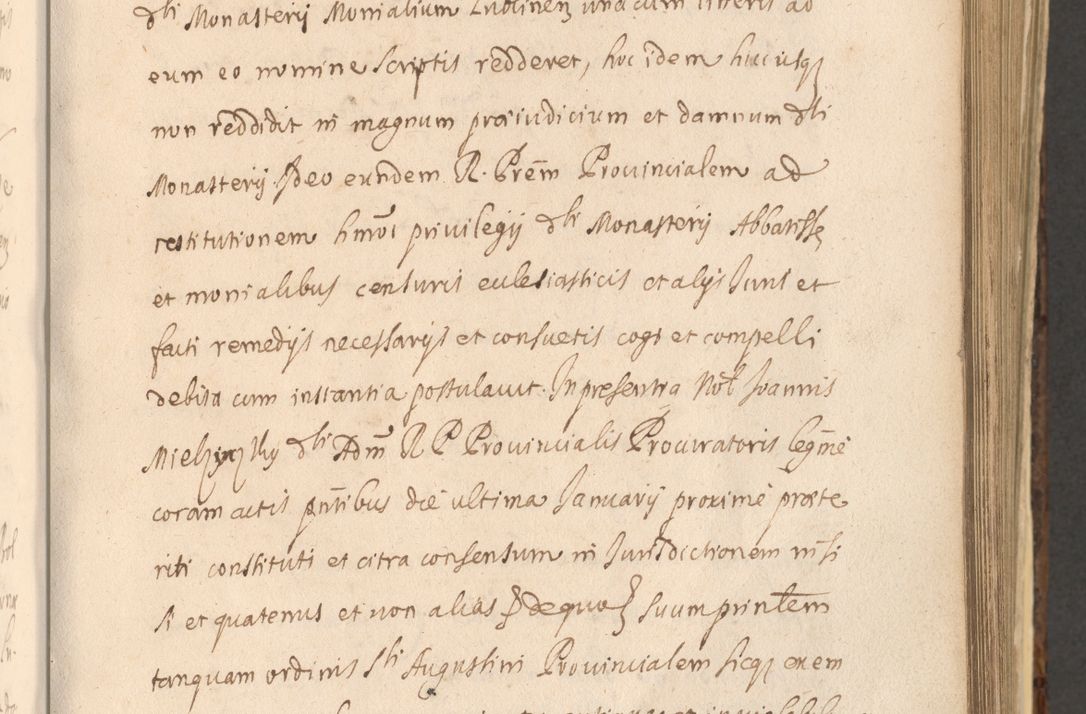 dti Monasterij Monialium Lublinen unacum litteris ad
eum eo nomine scriptis redderet, hoc idem hucusq
non reddidit in magnum præiudicium et damnum dti
Monasterij. Ideo eundem R. Prem Provincialem ad
restitutionem hmoi privilegij dti Monasterij Abbatissæ
et monialibus censuris ecclesiasticis et alijs Juris et
facti remedijs necessarijs et consvetis cogi et compelli
debita cum instantia postulavit. In presentia Nobl Joannis
dti Adm R P Provincialis Procuratoris legme
coram actis pntibus die ultima Januarij proxime præte
riti constituti et citra consensum in Jurisdictionem nisi
si et quatenus et non alias de quo suum prinlem
tanquam ordinis Sti Augustini Provincialem sicq exem